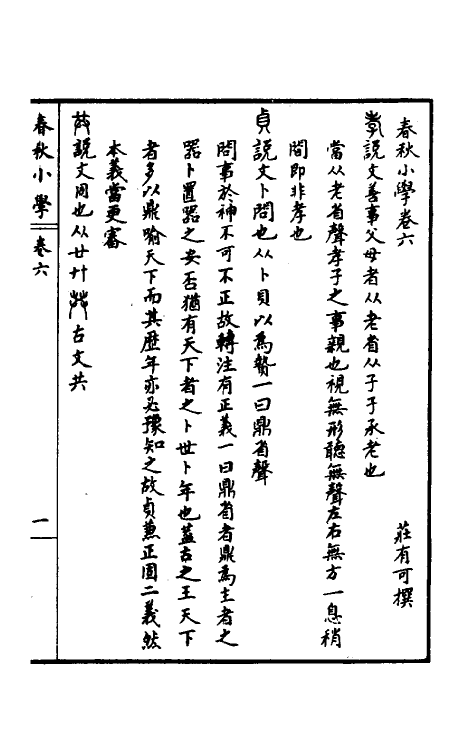 春秋小學卷六
莊有可撰
孝說文善事父母者从老省从子子承老也
當从老省聲孝子之事親也視無形聽無聲左右無方一息稍
間即非孝也
貞說文卜問也从卜貝以為贄一曰鼎省聲
問事於神不可不正故轉注有正義一曰鼎省者鼎為主者之
器卜置器之安否猶有天下者之卜世卜年也蓋古之王天下
者多以鼎喻天下而其歷年亦必豫知之故貞兼正固二義然
本義當更審
共說文同也从廿廾
古文共
春秋小學
卷六
一